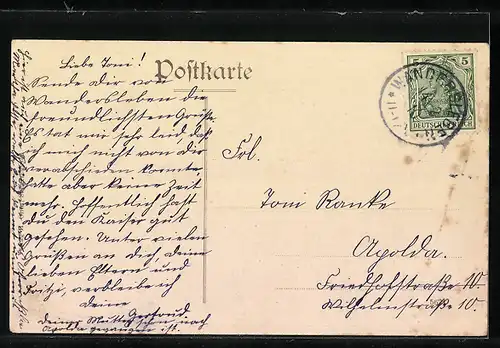 Postkarte
Liebe Toni!
Sende dir von
Wandersleben die
freundlichsten Grüße.
Es tat mir sehr leid, daß
ich mich nicht von dir
verabschieden konnte,
hatte aber keine Zeit
mehr. Hoffentlich hast
du den Kaiser gut
gesehen. Unter vielen
Grüßen an dich, deine
lieben Eltern und
Fritzi, verbleibe ich
deine
Gertrud.
5 5
WANDERSLEBEN
DEUTSCHES
Frl.
Toni Ranke
Apolda.
Friedhofstraße 10.
Wilhelmstraße 10.